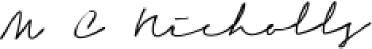 M C Nicholls